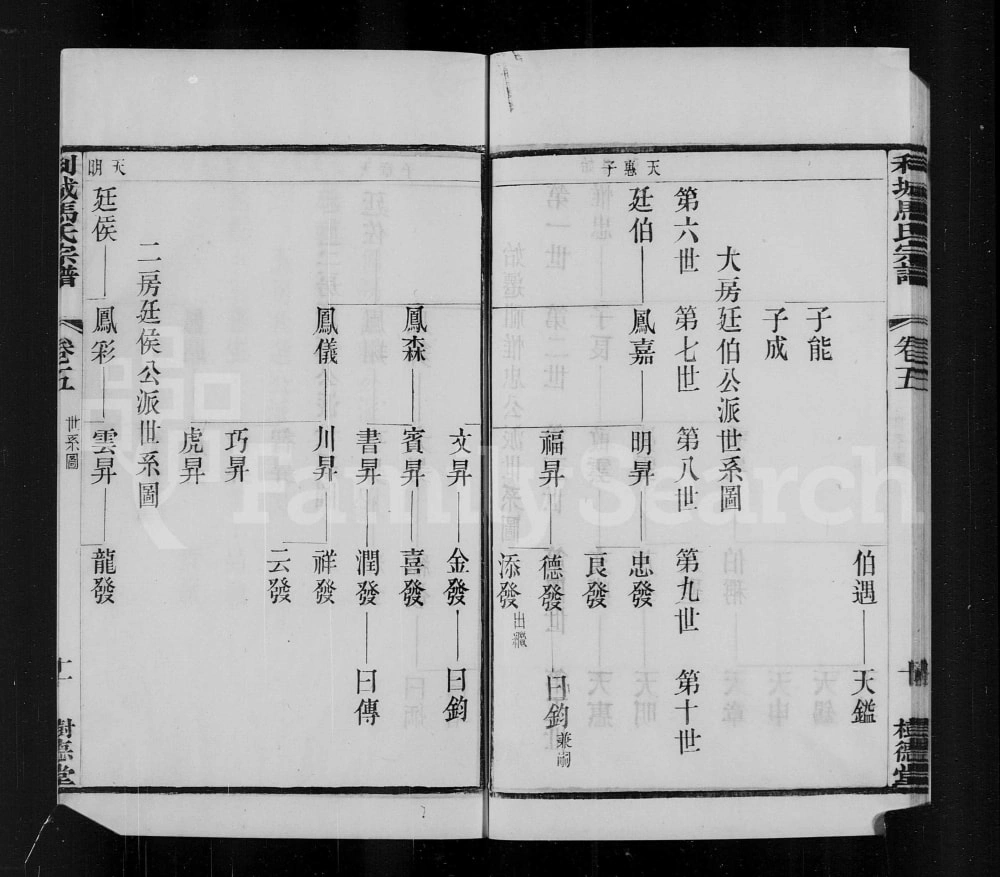 利城馬氏宗譜 卷五 十 樹德堂
伯遇 天鑑
子能
子成
大房廷伯公派世系圖
第六世 第七世 第八世 第九世 第十世
天惠子
廷伯 鳳嘉 明昇 忠發
良發
福昇 德發 曰鈞兼嗣
添發出繼
文昇 金發 曰鈞
鳳森 賓昇 喜發
書昇 潤發 曰傳
鳳儀 川昇 祥發
云發
巧昇
虎昇
二房廷侯公派世系圖
天明
廷侯 鳳彩 雲昇 龍發
利城馬氏宗譜 卷之五 世系圖 十一 樹德堂
FamilySearch